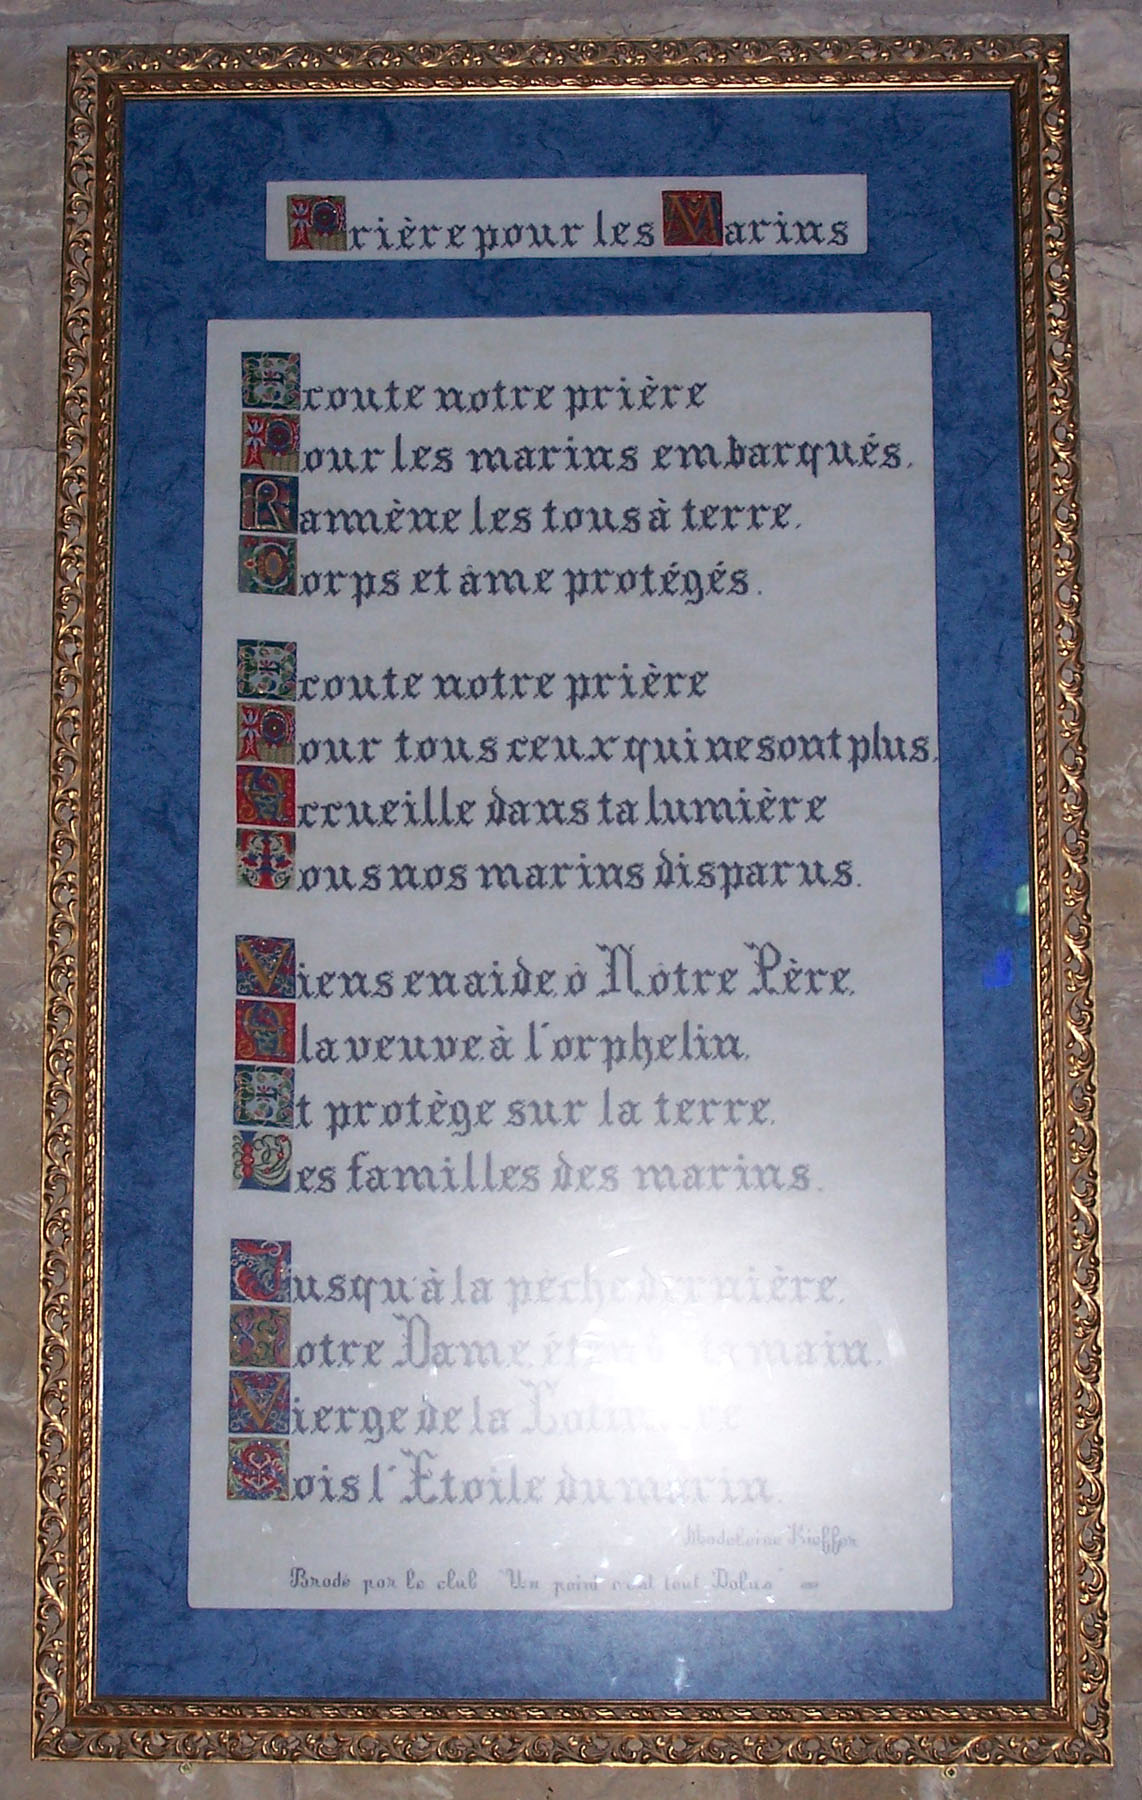 Prière pour les Marins
Ecoute notre prière
Pour les marins embarqués,
Ramène les tous à terre,
Corps et âme protégés.
Ecoute notre prière
Pour tous ceux qui ne sont plus,
Accueille dans ta lumière
Tous nos marins disparus.
Viens en aide ô Nôtre Père,
A la veuve à l'orphelin,
Et protège sur la terre,
Les familles des marins.
Jusqu'à la pêche dernière,
Notre Dame main,
Vierge de la
Sois l'Etoile du marin.
Madeleine Kieffer
Brodé par le club "Un point c'est tout Dolus"